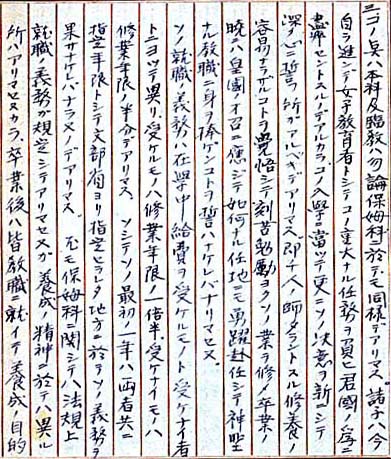 コノ点ハ本科及臨教ハ勿論保姆科ニ於テモ同様デアリマス、諸子ハ今
自ラ進ンデ女子教育者トシテコノ重大ナル任務ヲ負ヒ君國ノ為ニ
盡サントスルノデアルカラ、コノ入學ニ當ツテ更ニソノ決意ヲ新ニシテ
深ク心ニ誓フ所ガアルベキデアリマス、即チ人ノ師タラントスル修養ノ
容易ナラザルコトヲ覺悟シテ刻苦勉勵ヨクソノ業ヲ修メ卒業ノ
曉ハ皇國ノ召ニ應ジテ如何ナル任地ニモ勇躍赴任シテ神聖
ナル教職ニ身ヲ捧ゲンコトヲ誓ハナケレバナリマセヌ。
ソノ就職ノ義務ハ在學中給費ヲ受ケルモノト受ケナイ者
トニヨツテ異リ、受ケルモノハ修業年限ノ一倍半、受ケナイモノハ
修業年限ノ半分デアリマス。ソシテソノ最初ノ一年ハ両者共ニ
指定年限トシテ文部省ヨリ指定セラレタ地方ニ於テソノ義務ヲ
果サナケレバナラヌノデアリマス。尤モ保姆科ニ関シテハ法規上
就職ノ義務ガ規定シテアリマセヌガ養成ノ精神ニ於テハ異ル
所ハアリマセヌカラ、卒業後ハ皆教職ニ就イテ養成ノ目的